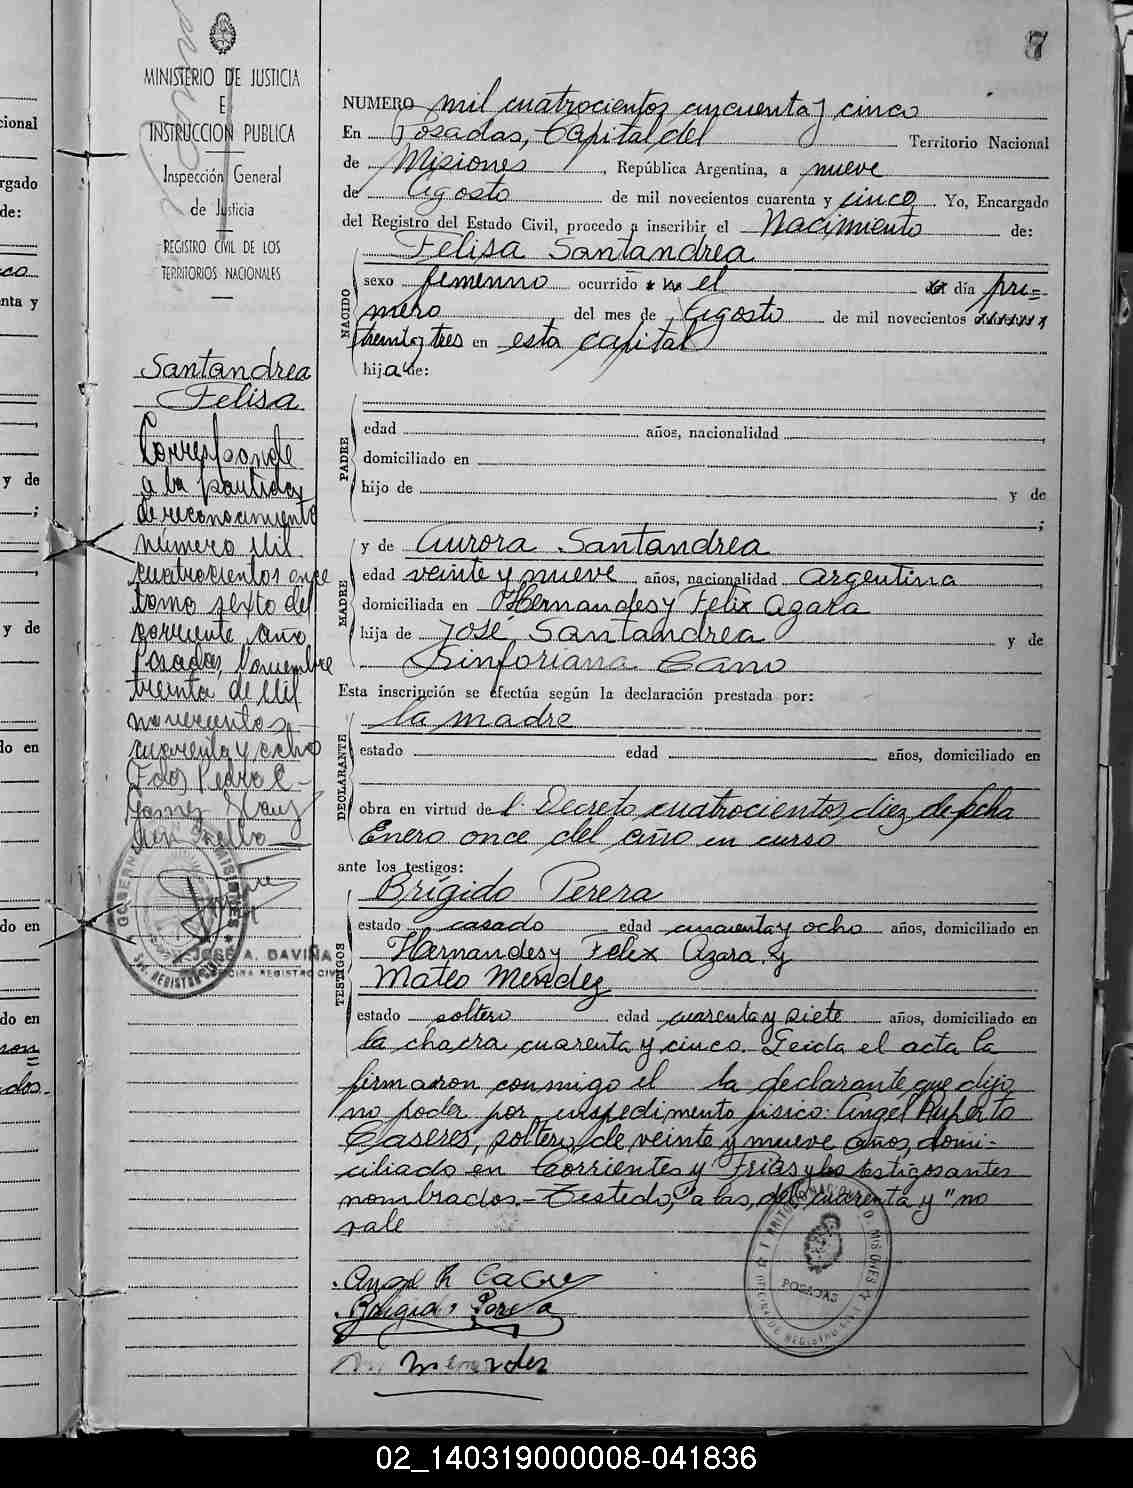 7
MINISTERIO DE JUSTICIA
E
INSTRUCCION PUBLICA
Inspección General
de Justicia
REGISTRO CIVIL DE LOS
TERRITORIOS NACIONALES
Santandrea
Felisa
Corresponde
a la partida
de reconocimiento
número Mil
cuatrocientos once
tomo sexto del
corriente año
Posadas, Noviembre
treinta de Mil
novecientos
cuarenta y ocho
Fdo Pedro C.
Gomez
JOSÉ A. DAVIÑA
NUMERO mil cuatrocientos cincuenta y cinco
En Posadas, Capital del Territorio Nacional
de Misiones, República Argentina, a nueve
de Agosto de mil novecientos cuarenta y cinco Yo, Encargado
del Registro del Estado Civil, procedo a inscribir el Nacimiento de:
Felisa Santandrea
NACIDO
sexo femenino ocurrido el día pri=
mero del mes de Agosto de mil novecientos
treinta y tres en esta capital
hija de:
PADRE
edad años, nacionalidad
domiciliado en
hijo de y de
;
MADRE
y de Aurora Santandrea
edad veinte y nueve años, nacionalidad argentina
domiciliada en Hernandes y Felix Azara
hija de José Santandrea y de
Sinforiana Cano
Esta inscripción se efectúa según la declaración prestada por:
la madre
DECLARANTE
estado edad años, domiciliado en
obra en virtud del Decreto cuatrocientos diez de fecha
Enero once del año en curso
ante los testigos:
Brígido Perera
TESTIGOS
estado casado edad cuarenta y ocho años, domiciliado en
Hernandes y Felix Azara y
Mateo Mendez
estado soltero edad cuarenta y siete años, domiciliado en
la chacra cuarenta y cinco. Leida el acta la
firmaron conmigo el la declarante que dijo
no poder por impedimento fisico: Angel Ruperto
Caseres, soltero, de veinte y nueve años, domi-
ciliado en Corrientes y Frias y los testigos antes
nombrados.- Testado, "a las, del, cuarenta y" no
vale
Angel R Cacere
Brigido Perera
Mendez
POSADAS
02_140319000008-041836